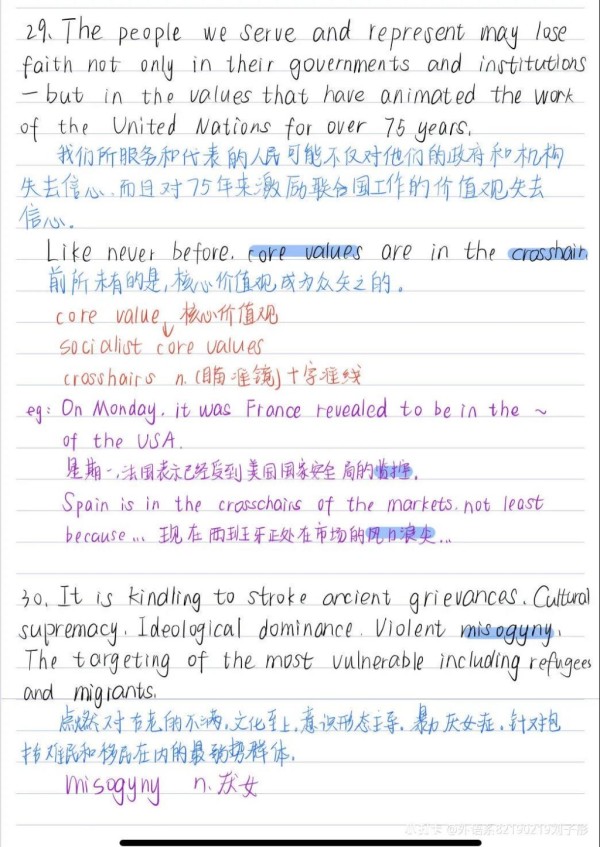 29、The people we serve and represent may lose
faith not only in their governments and institutions
—but in the values that have animated the work
of the United Nations for over 75 years.
我们所服务和代表的人民可能不仅对他们的政府和机构
失去信心,而且对75年来激励联合国工作的价值观失去
信心。
Like never before. core values are in the crosshair
前所未有的是,核心价值观成为众矢之的。
core value 核心价值观
socialist core values
crosshairs n. (瞄准镜)十字准线
eg: On Monday, it was France revealed to be in the ~
of the USA.
星期一,法国表示已经受到美国国家安全局的监控。
Spain is in the crosschairs of the markets, not least
because... 现在西班牙正处在市场的风口浪尖...
30. It is kindling to stroke ancient grievances. Cultural
supremacy. Ideological dominance. Violent misogyny.
The targeting of the most vulnerable including refugees
and migrants.
点燃对古老的不满,文化至上,意识形态主导,暴力厌女症,针对包
括难民和移民在内的最弱势群体.
misogyny n. 厌女